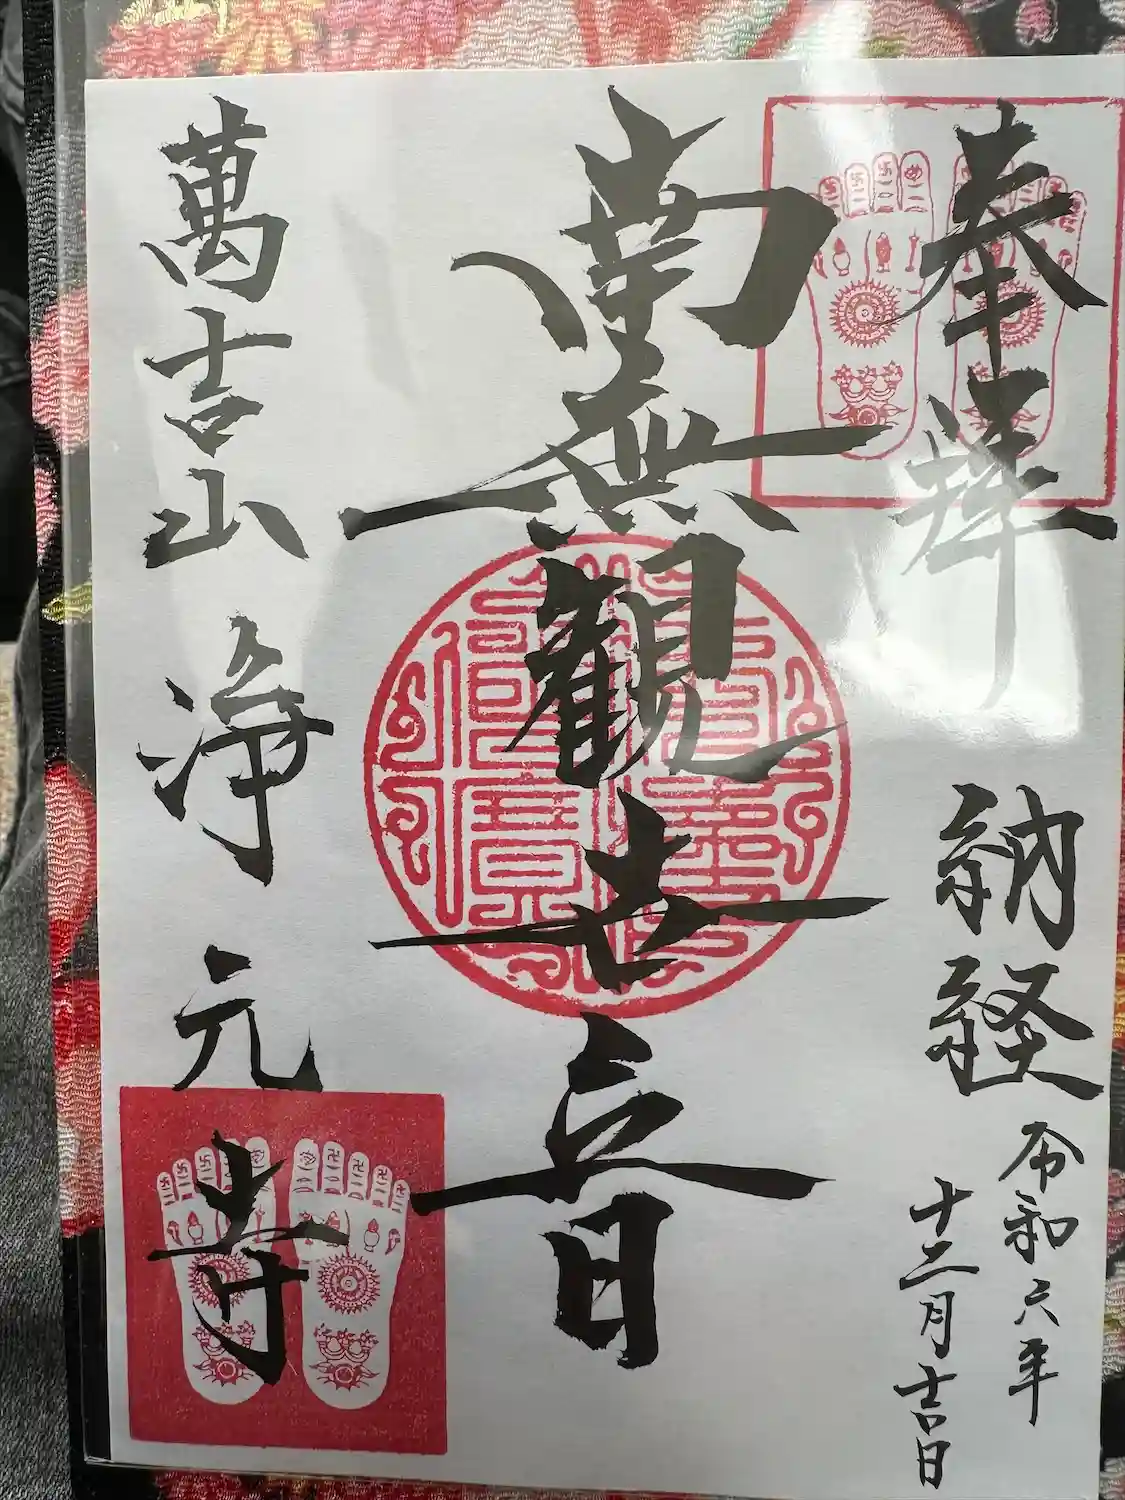 奉拝
納経
令和六年
十二月吉日
南無観世音
萬吉山 浄元寺